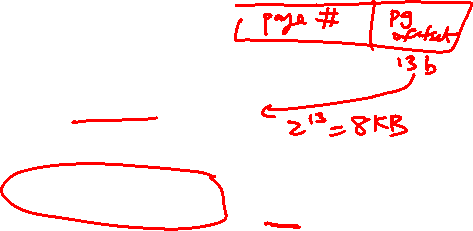 page # pg
offset
13 b
2^13 = 8KB